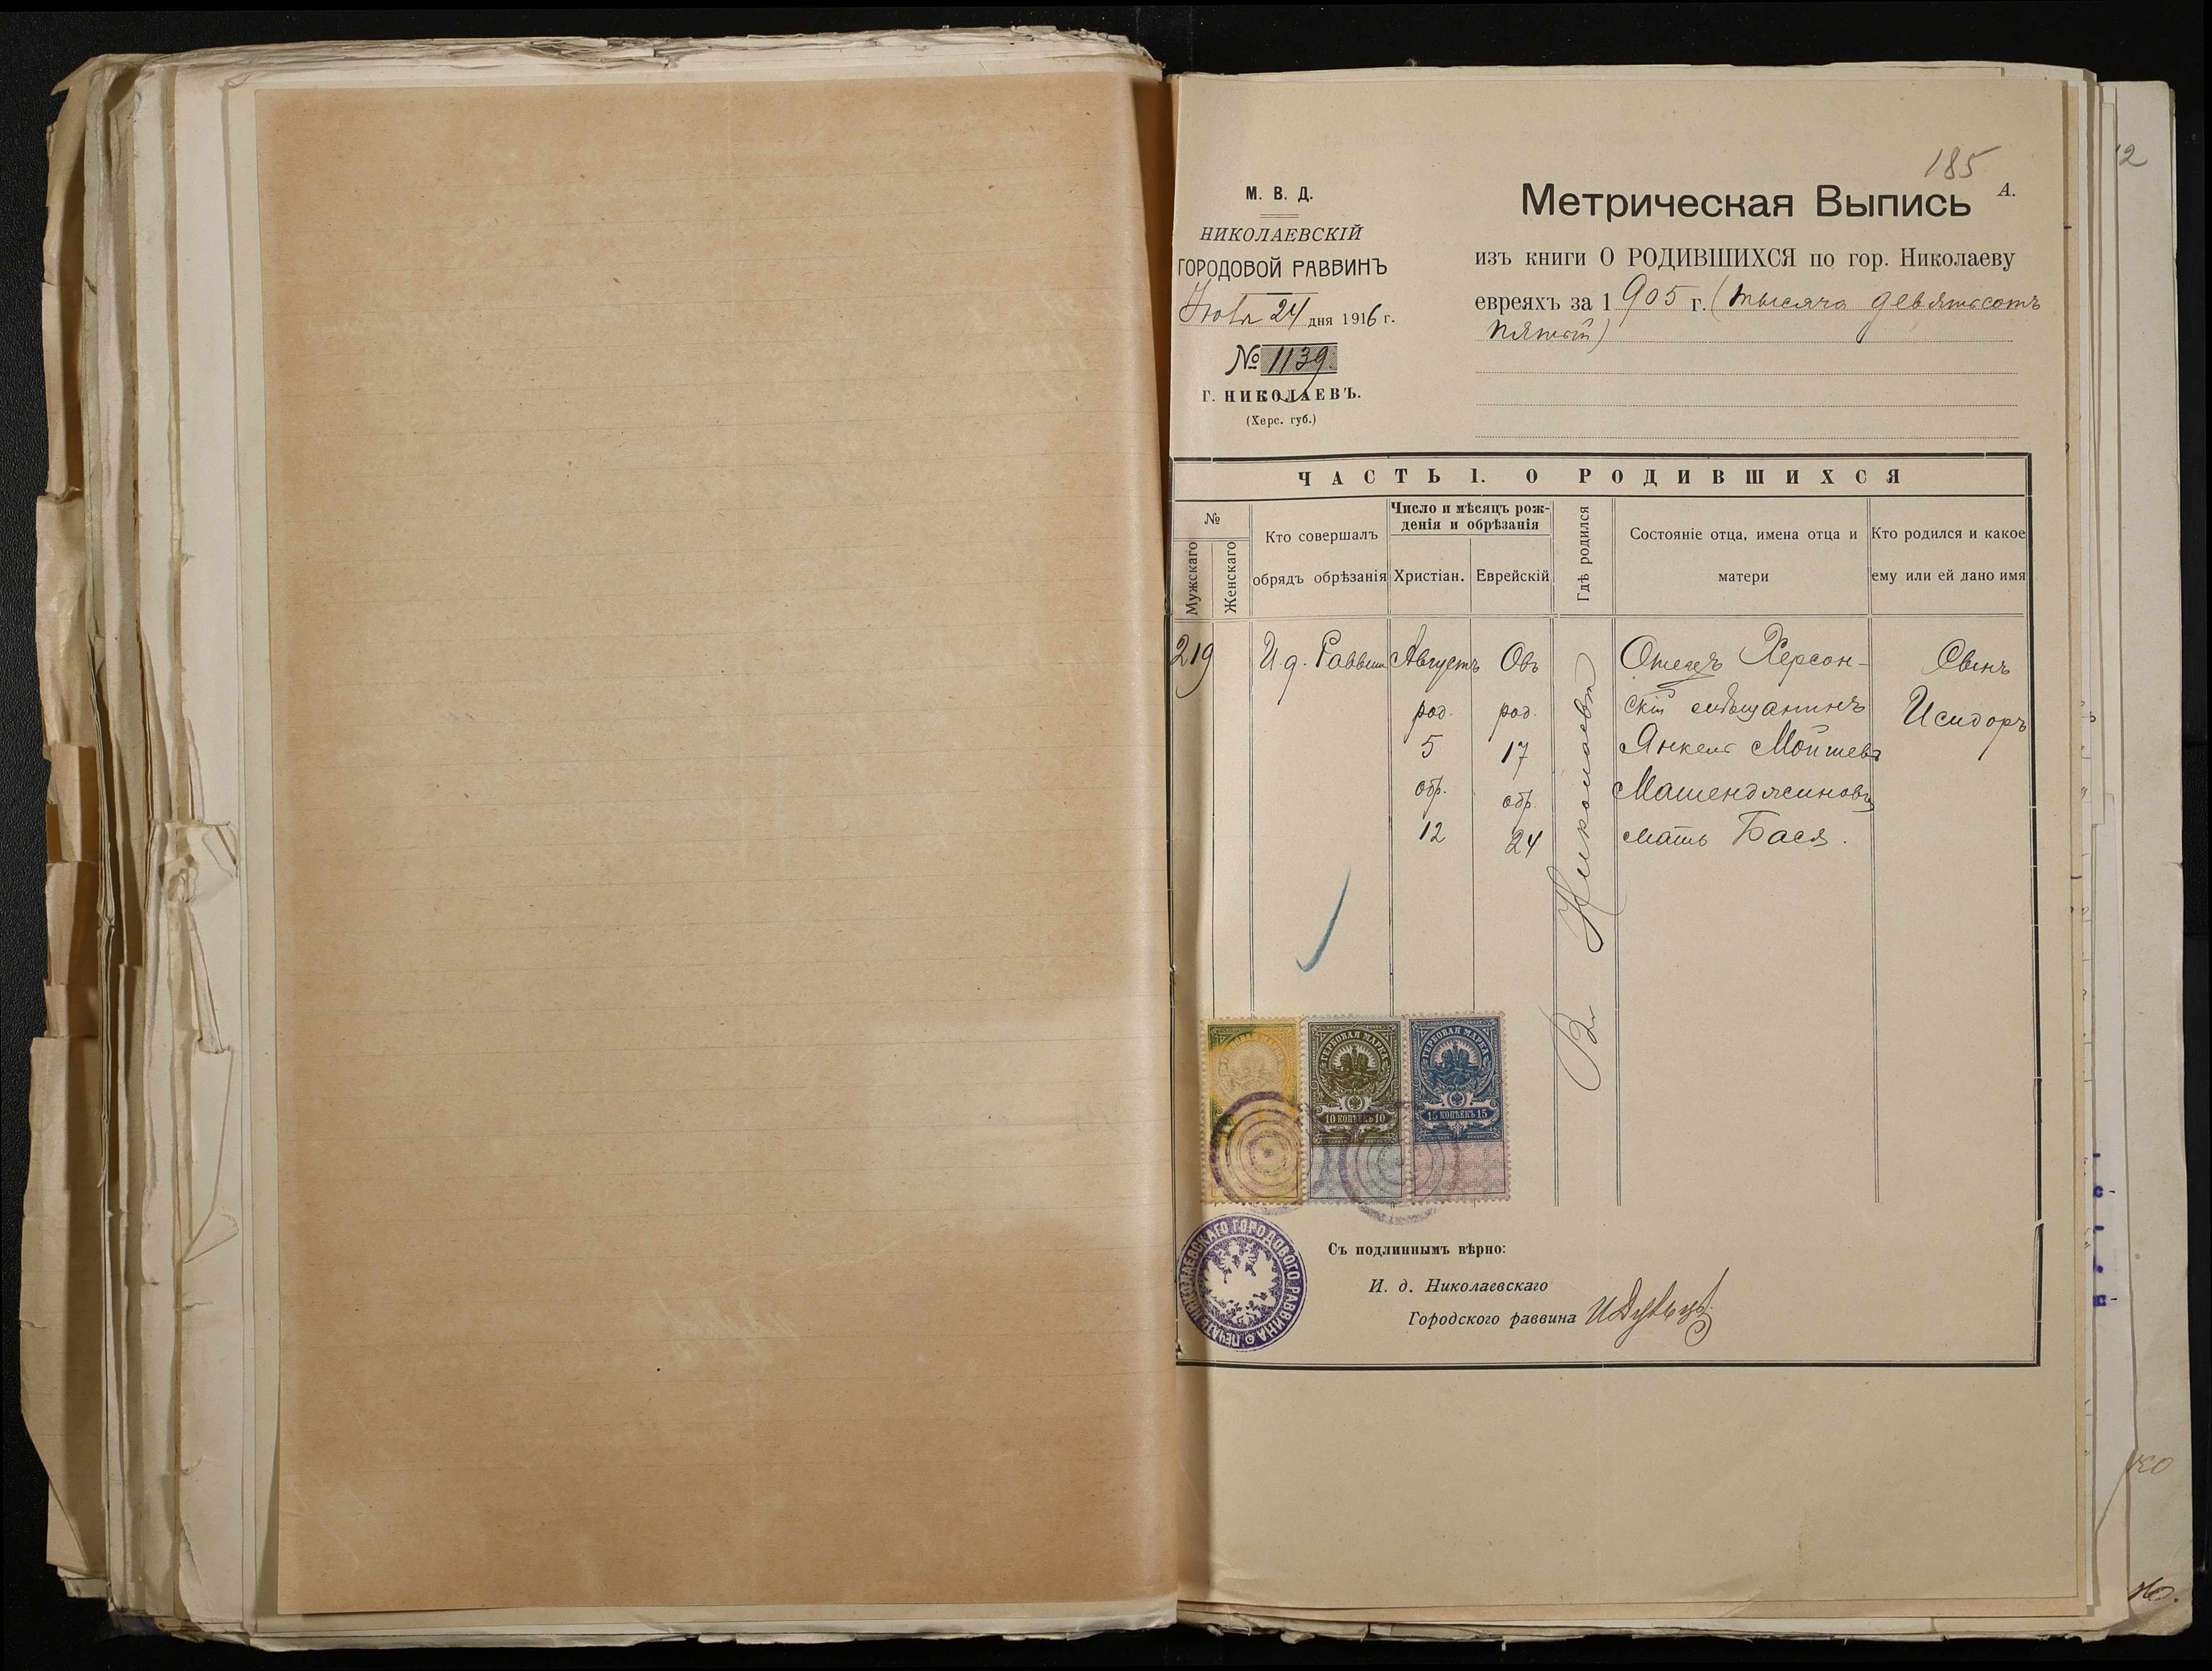 185
А.
М. В. Д.
НИКОЛАЕВСКІЙ
ГОРОДОВОЙ РАВВИНЪ
24 дня 1916 г.
№ 1139.
Г. НИКОЛАЕВЪ.
(Херс. губ.)
Метрическая Выпись
изъ книги О РОДИВШИХСЯ по гор. Николаеву
евреяхъ за 1905 г. (тысяча девятьсотъ
пятый)
ЧАСТЬ I. О РОДИВШИХСЯ
№
Мужскаго
Женскаго
Кто совершалъ
обрядъ обрѣзанія
Число и мѣсяцъ рож-
денія и обрѣзанія
Христіан.
Еврейскій
Гдѣ родился
Состояніе отца, имена отца и
матери
Кто родился и какое
ему или ей дано имя
219
И. д. Раввин
Августъ
род.
5
обр.
12
Овъ
род.
17
обр.
24
Въ Николаевѣ
Отецъ Херсон-
скій мѣщанинъ
Янкель Мойшевъ
мать Бася.
Сынъ
Исидоръ
ГЕРБОВАЯ МАРКА
10 КОПѢЕКЪ 10
ГЕРБОВАЯ МАРКА
15 КОПѢЕКЪ 15
ПЕЧАТЬ НИКОЛАЕВСКАГО ГОРОДОВОГО РАВВИНА
Съ подлиннымъ вѣрно:
И. д. Николаевскаго
Городского раввина
12